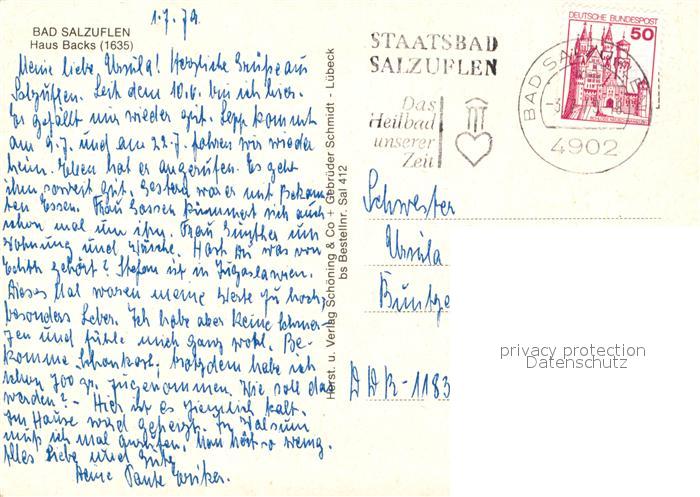 1.7.79
BAD SALZUFLEN
Haus Backs (1635)
Meine liebe Ursula! Herzliche Grüße aus
Salzuflen. Seit dem 10.6. bin ich hier.
Es gefällt mir wieder gut. Sepp kommt
am 9.7. und am 22.7. fahren wir wieder
heim. Eben hat er angerufen. Es geht
ihm soweit gut. Gestern war er mit Bekann
ten Essen. Frau Gossen kümmert sich auch
schon mal um ihn. Frau Günther um
Wohnung und Wäsche. Hast du was von
gehört? Stefan ist in Jugoslawien.
Dieses Mal waren meine Werte zu hoch,
besonders Leber. Ich habe aber keine Schmer-
zen und fühle mich ganz wohl. Be-
komme Schonkost, trotzdem habe ich
schon 700 gr. zugenommen. Wie soll das
werden? - Hier ist es ziemlich kalt.
Im Hause wird geheizt. In Walsum
muß ich mal anrufen. Man hört so wenig.
Alles Liebe und Gute
Deine Tante
Horst. u. Verlag Schöning & Co + Gebrüder Schmidt - Lübeck
bs Bestellnr. Sal 412
STAATSBAD
SALZUFLEN
Das
Heilbad
unserer
Zeit
DEUTSCHE BUNDESPOST
50
BAD SALZUFLEN
4902
Schwester
Ursula
DDR-1183
privacy protection
Datenschutz